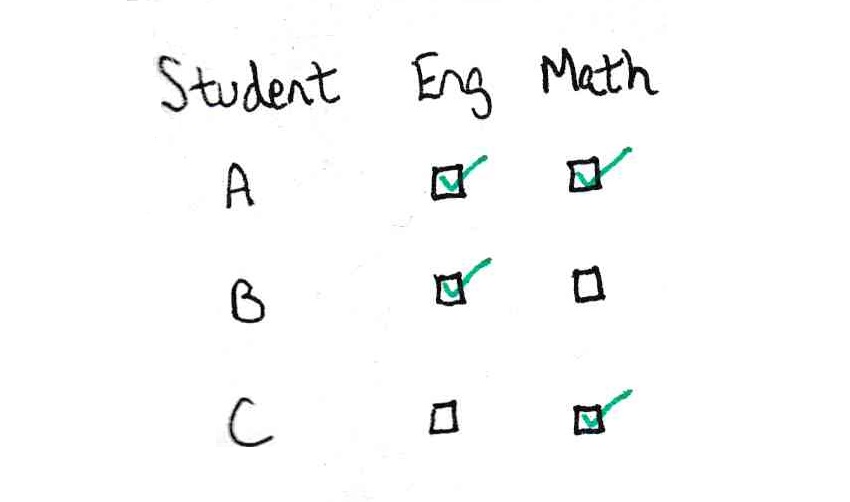 Student Eng Math
A ☑ ☑
B ☑ ☐
C ☐ ☑